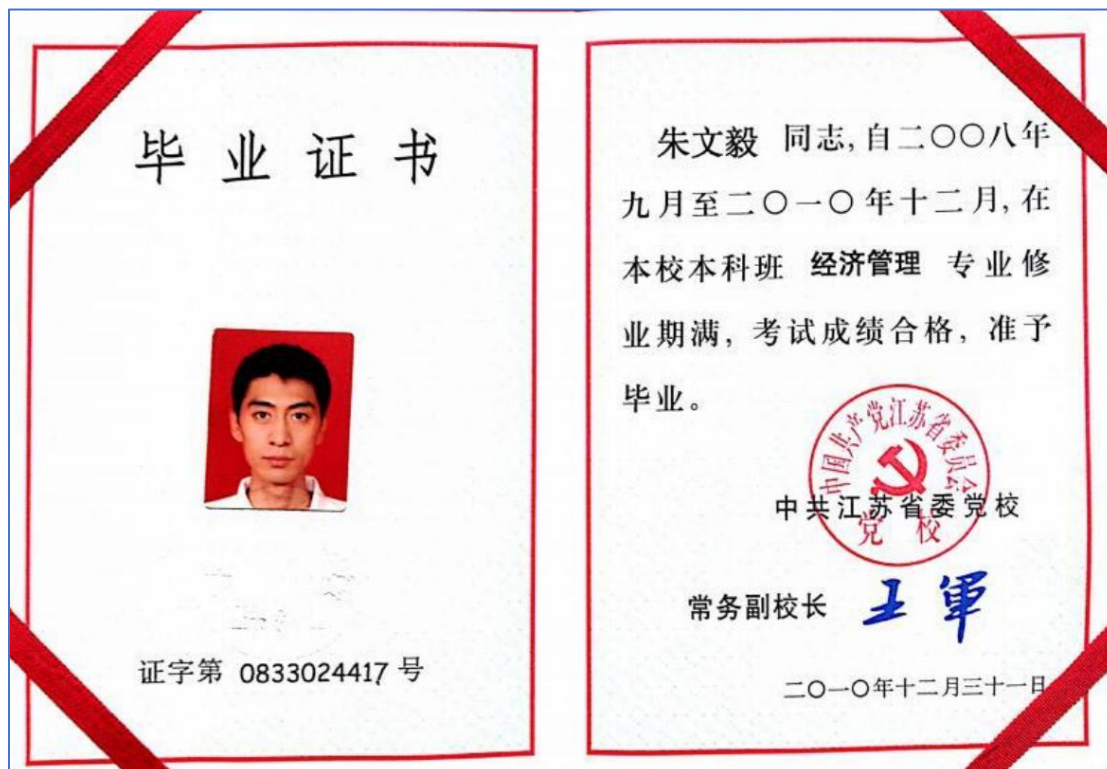 毕业证书
证字第 0833024417 号
朱文毅 同志,自二〇〇八年
九月至二〇一〇年十二月,在
本校本科班 经济管理 专业修
业期满,考试成绩合格,准予
毕业。
中国共产党江苏省委员会
党校
中共江苏省委党校
常务副校长 王軍
二〇一〇年十二月三十一日